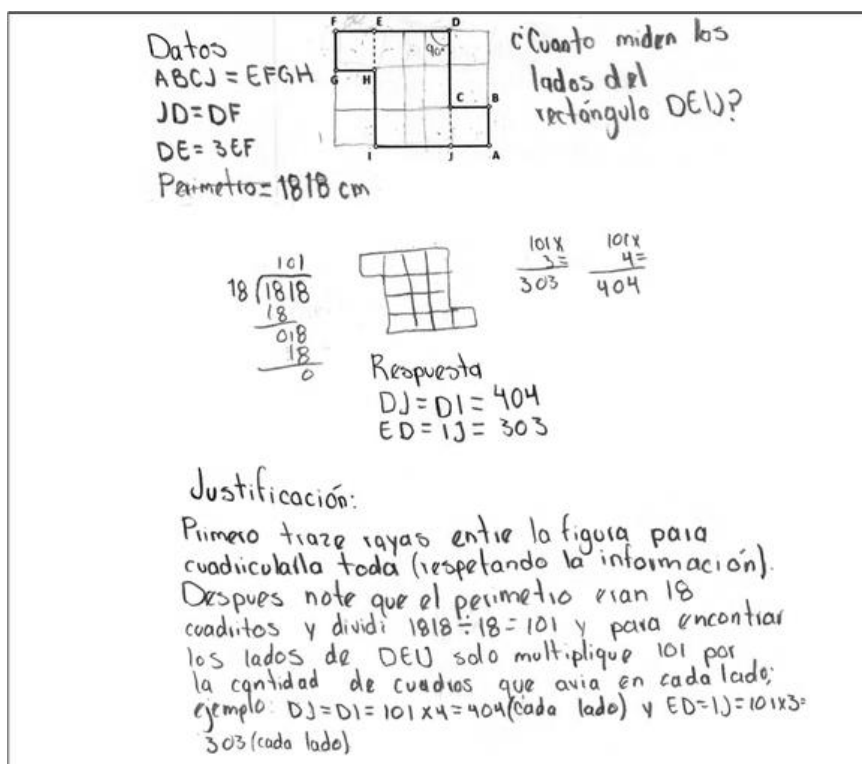 Datos
ABCJ = EFGH
JD=DF
DE= 3EF
Perimetro= 1818 cm
F E D
90°
G H
C B
I J A
¿Cuanto miden los
lados del
rectángulo DEIJ?
101
18 1818
18
018
18
0
101x
3=
303
101x
4=
404
Respuesta
DJ = DI = 404
ED = IJ = 303
Justificación:
Primero traze rayas entre la figura para
cuadricularlla toda (respetando la información).
Despues note que el perimetro eran 18
cuadritos y dividi 1818÷18=101 y para encontrar
los lados de DEIJ solo multiplique 101 por
la cantidad de cuadros que avia en cada lado;
ejemplo: DJ=DI=101x4=404(cada lado) y ED=IJ=101x3=
303(cada lado)